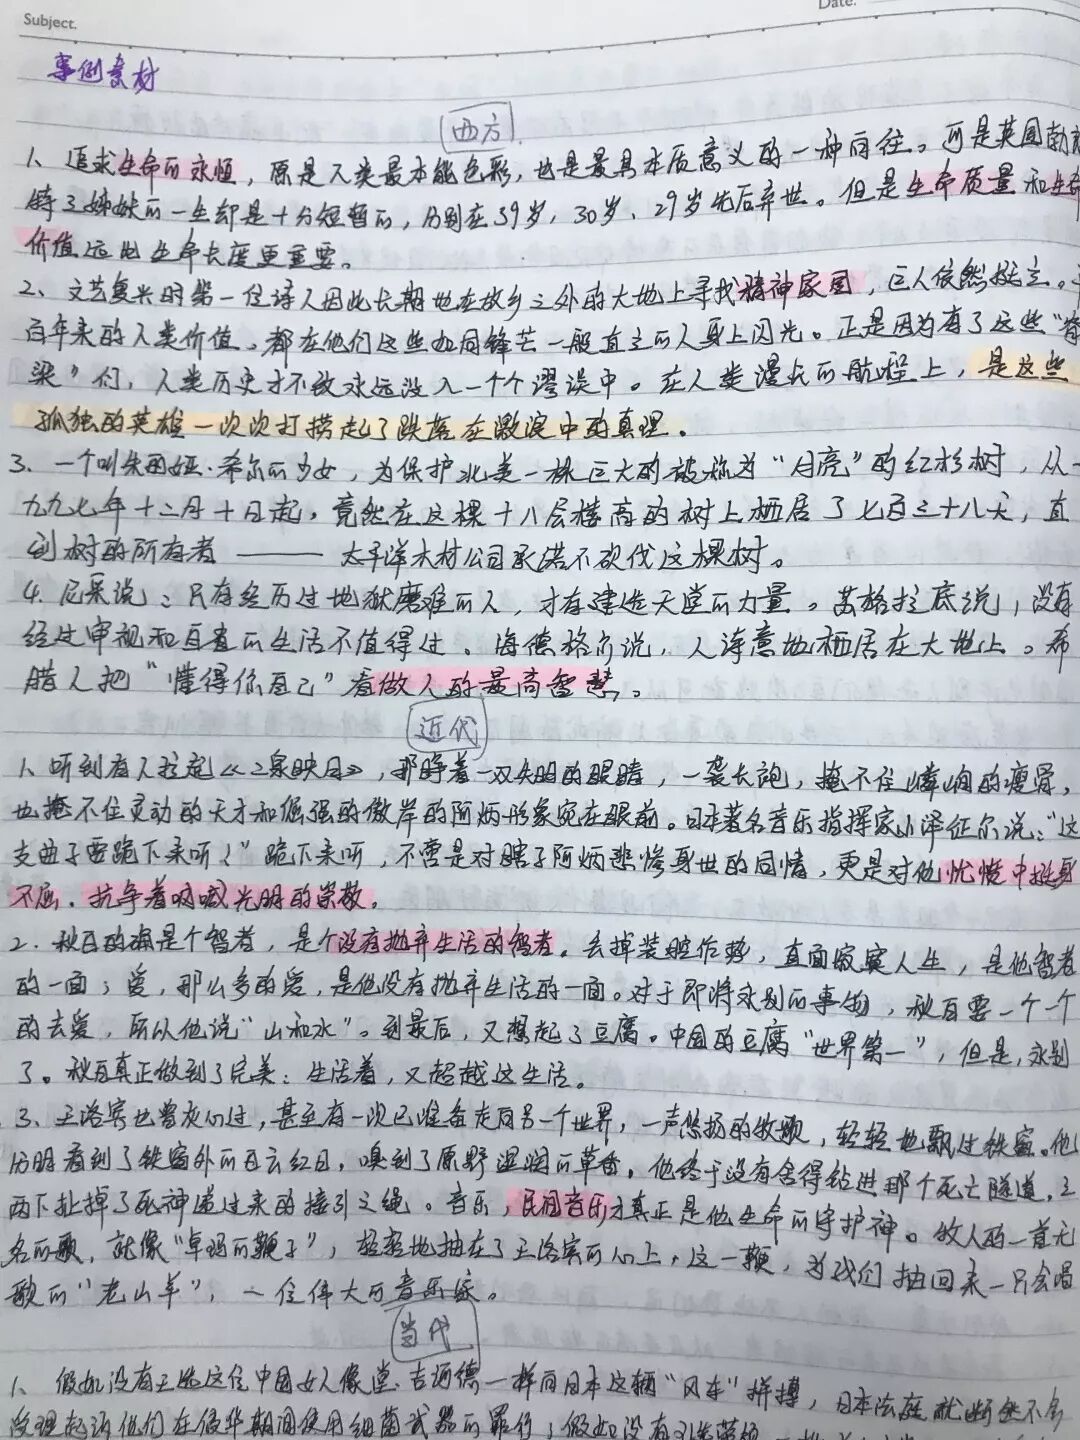 Subject.
Date.
事例素材
西方
1、追求生命的永恒，原是人类最本能色彩，也是最具本质意义的一种向往。可是英国勃朗
特三姊妹的一生却是十分短暂的，分别在39岁，30岁、29岁先后弃世。但是生命质量和生命
价值远比生命长度更重要。
2、文艺复兴时第一位诗人因此长期地在故乡之外的大地上寻找精神家园，巨人依然挺立。
百年来的人类价值，都在他们这些如同锋芒一般直立的人身上闪光。正是因为有了这些“脊
梁”们，人类历史才不致永远没入一个个谬误中。在人类漫长的航程上，是这些
孤独的英雄一次次打捞起了跌落在激浪中的真理。
3、一个叫朱丽娅·希尔的少女，为保护北美一株巨大的被称为“月亮”的红杉树，从一
九九七年十二月十日起，竟然在这棵十八层楼高的树上栖居了七百三十八天，直
到树的所有者——太平洋木材公司承诺不砍伐这棵树。
4.尼采说：只有经历过地狱磨难的人，才有建造天堂的力量。苏格拉底说，没有
经过审视和自查的生活不值得过。海德格尔说，人诗意地栖居在大地上。希
腊人把“懂得你自己”看做人的最高智慧。
近代
1、听到有人拉起《二泉映月》，那睁着一双失明的眼睛，一袭长袍，掩不住嶙峋的瘦骨，
也掩不住灵动的天才和倔强的傲岸的阿炳形象宛在眼前。日本著名音乐指挥家小泽征尔说：“这
支曲子要跪下来听！”跪下来听，不啻是对瞎子阿炳悲惨身世的同情，更是对他恍惚中挺身
不屈，抗争着呐喊光明的崇敬。
2.秋白的确是个智者，是个没有抛弃生活的智者。去掉装腔作势，直面寂寞人生，是他智者
的一面；爱，那么多的爱，是他没有抛弃生活的一面。对于即将永别的事物，秋白要一个一个
的去爱，所以他说“山和水”。到最后，又想起了豆腐。中国的豆腐“世界第一”，但是，永别
了。秋白真正做到了完美：生活着，又超越这生活。
3.王洛宾也曾灰心过，甚至有一次已准备走向另一个世界，一声悠扬的牧歌，轻轻地飘过铁窗。他
分明看到了铁窗外的白云红日，嗅到了原野湿润的草香，他终于没有舍得钻进那个死亡隧道，三
两下扯掉了死神递过来的接引之绳。音乐，民间音乐才真正是他生命的守护神。牧人的一首无
名的歌，就像“卓玛的鞭子”，轻轻地抽在了王洛宾的心上，这一鞭，为我们抽回来一只会唱
歌的“老山羊”，一位伟大的音乐家。
当代
1、假如没有王选这位中国女人像堂·吉诃德一样向日本这辆“风车”拼搏，日本法庭就断然不会
受理起诉他们在侵华期间使用细菌武器的罪行；假如没有